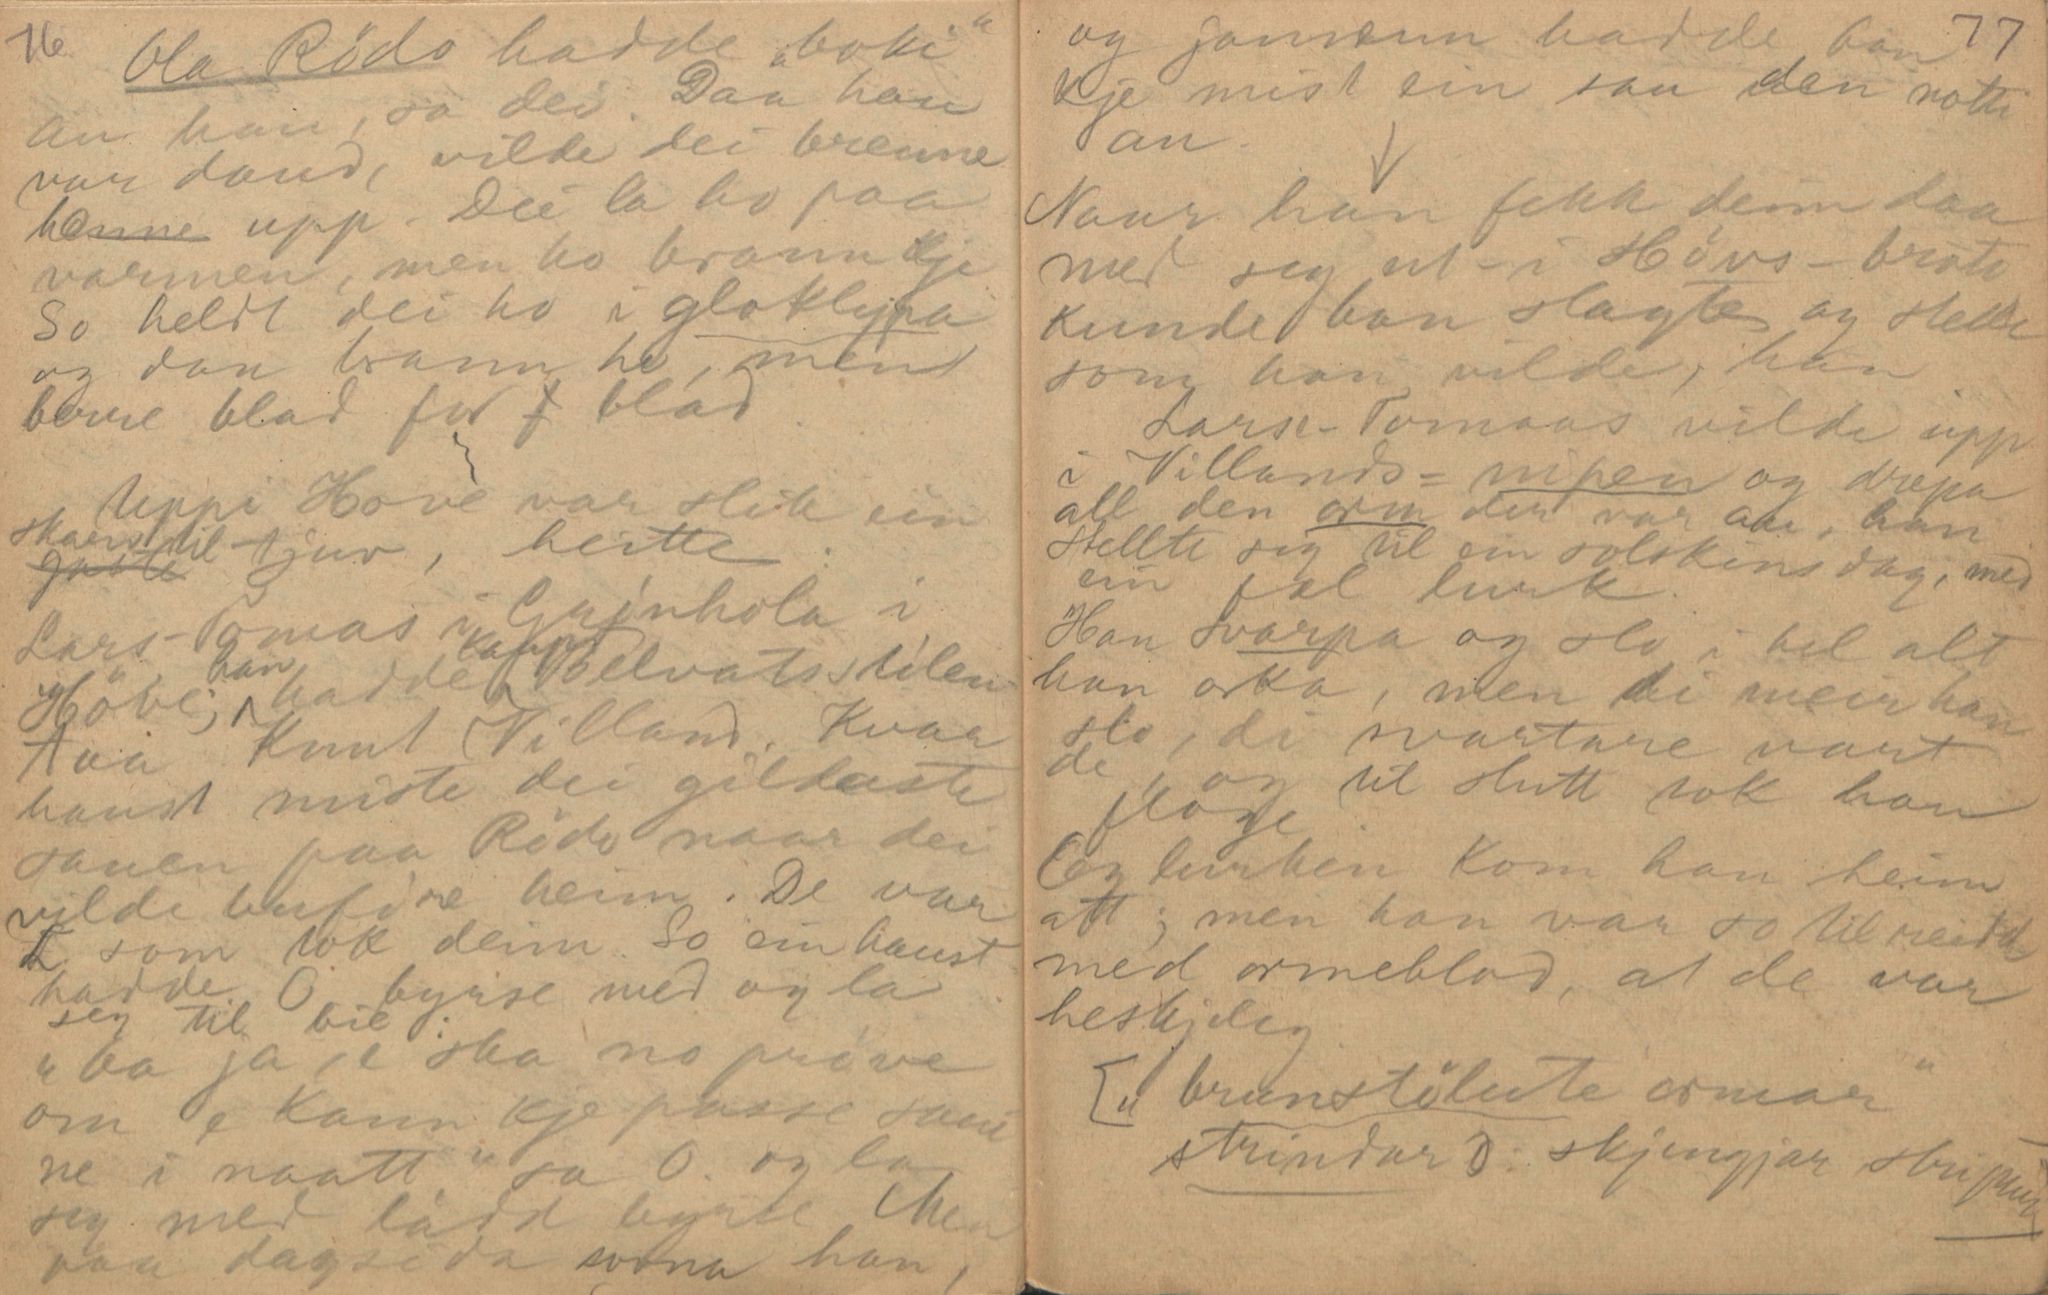 76
Ola Rödo hadde „boki"
an han, sa dei. Daa han
var daud, vilde dei brenne
henne upp. Dei la ho paa
varmen, men ho brann kje
So heldt dei ho i gloklypa
og daa brann ho, men
berre blad for blad.
Uppi Hove var slik ein
skars til tjuv, heitte:
Lars-Tomas i Grjønhola i
Höve; han hadde kaupt Belvatsstilen
taa Knut Villand. Kvar
haust miste dei gildaste
sauen paa Rödo naar dei
vilde buföre heim. De var
L som tok deim. So ein haust
hadde O byrse med og la
seg til bie:
„ha ja, e ska no pröve
om e kann kje passe saui
ne i naatt" sa O. og la
seg med lådd byrse. Men
paa dagsida sovna han,
77
og jamsun hadde han
kje mist ein sau den notti
an.
Naar han fekk deim daa
med seg ut-i Hövs-bröto
kunde han slagte og stelle
som han vilde, han
Lars-Tomaas vilde upp
i Villands-nipen og drepa
all den orm der var aa, han
stellte seg til ein solskinsdag, med
ein fæl lurk.
Han svarpa og slo i hel alt
han orka, men di meir han
slo, di svartare vart
de, og til slutt tok han
flöge
Og lurken kom han heim
att; men han var so til reidd
med ormeblod, at de var
heskjeleg
[„brunstölute ormar"
strindar ɔ: skjengjar stripur